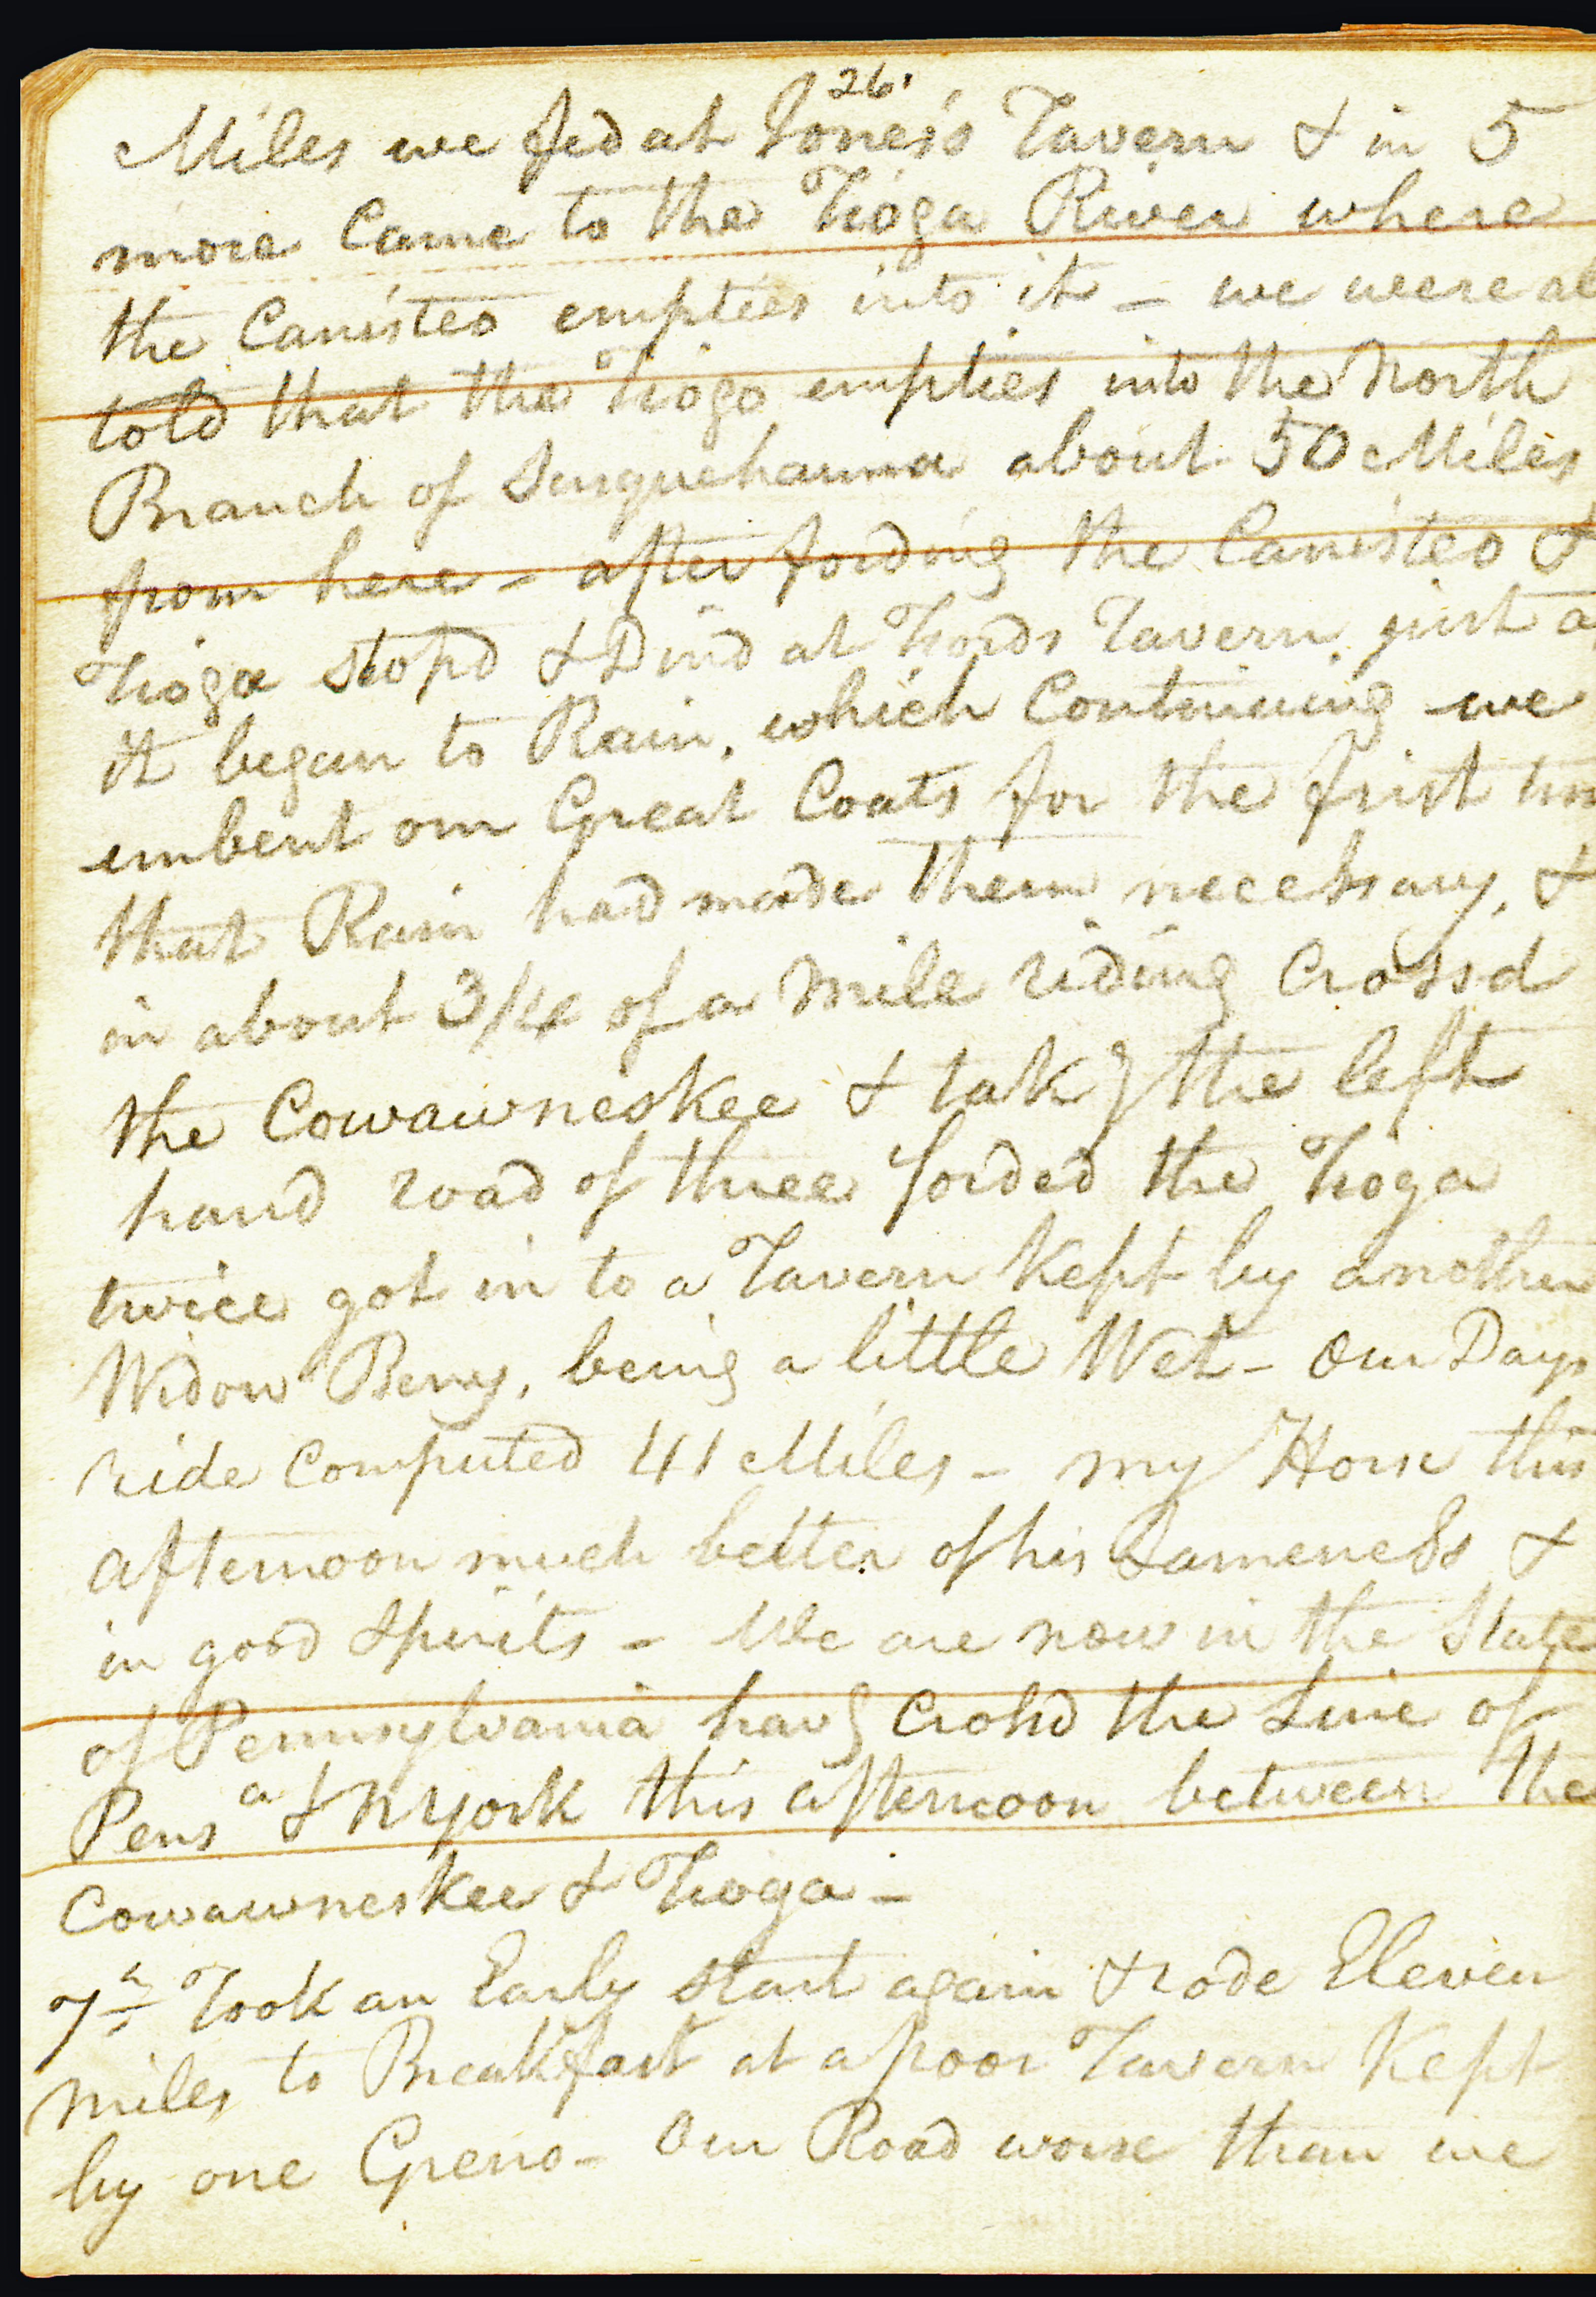 26.
Miles we fed at Jones's Tavern & in 5
more Came to the Tioga River where
the Canisteo empties into it - we were al
told that the Tioga empties into the North
Branch of Susquehanna about 50 Miles
from here - after fording the Canisteo &
Tioga stopd & Dind at Fords Tavern just a
it began to Rain, which Continuing we
unbent our Great Coats for the first tim
that Rain had made them necessary, &
in about 3/4 of a Mile riding Crossd
the Cowawneskee & takg the left
hand road of three forded the Tioga
twice got in to a Tavern Kept by another
Widow Berry, being a little Wet - Our Days
ride Computed 41 Miles - my Horse this
afternoon much better of his Lameness &
in good Spirits - We are now in the State
of Pennsylvania havg Crossd the Line of
Pensa & N York this afternoon between the
Cowawneskee & Tioga -
7th Took an Early start again & rode Eleven
Miles to Breakfast at a poor Tavern Kept
by one Greno - Our Road worse than we